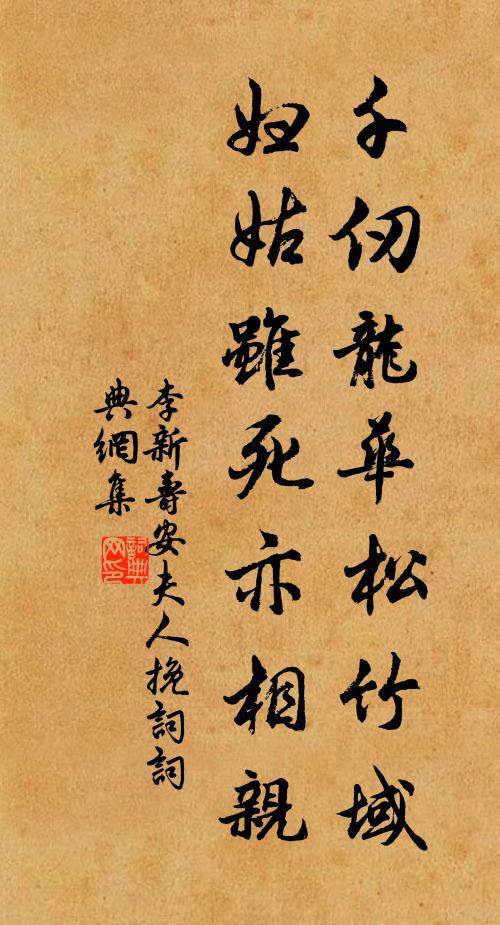 千仞龍華松竹域
婦姑雖死亦相親
李新壽安夫人挽詞詞
典網集
詞典
网印